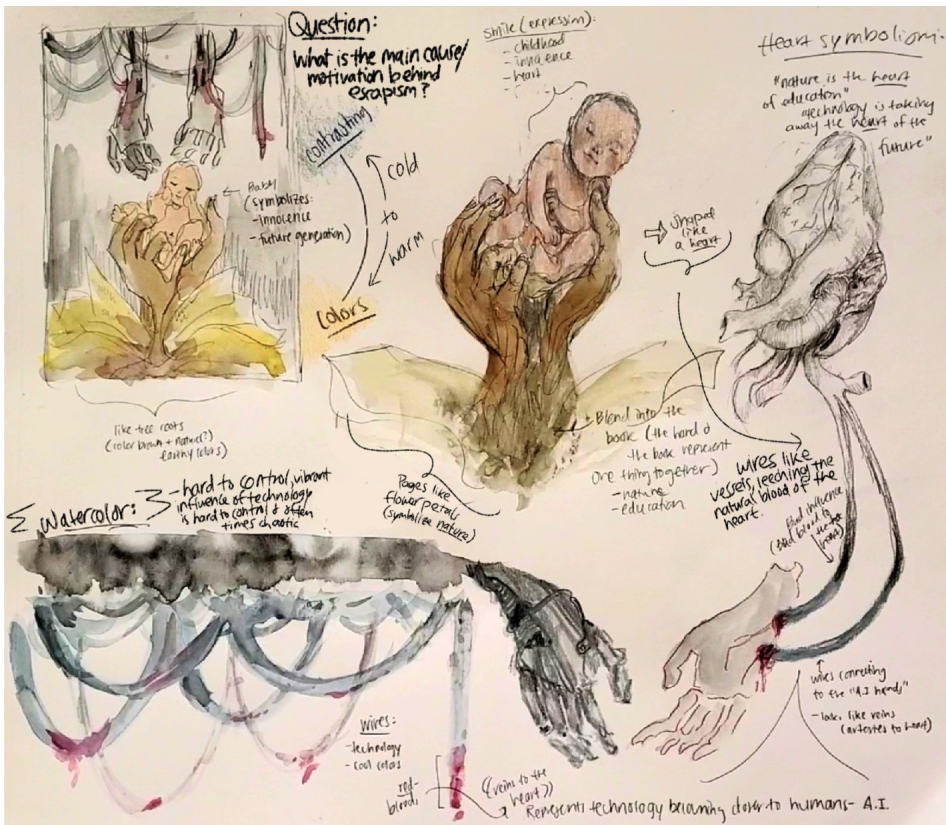 Question:
What is the main cause/
motivation behind
escapism?
contrasting
cold
to
warm
colors
Baby
(symbolizes:
- innocence
- future generation)
like tree roots
(color brown + nature?)
earthy colors
smile (expression):
- childhood
- innocence
- heart
Heart symbolism:
"nature is the heart
of education"
"technology is taking
away the heart of the
future"
shaped
like
a heart
+ Blend into the
book (the hand &
the book represent
one thing together)
- nature
- education
Pages like
flower petals
(symbolize nature)
wires like
vessels, leeching the
natural blood of the
heart.
Bad influence
(Bad blood to
heart)
wires connecting
to the "A.I hands"
- looks like veins
(arteries to heart)
Watercolor:
- hard to control, vibrant
influence of technology
is hard to control & often
times chaotic
wires:
- technology
- cool colors
red-
blood:
(veins to the
heart)
Represents technology becoming closer to humans - A.I.